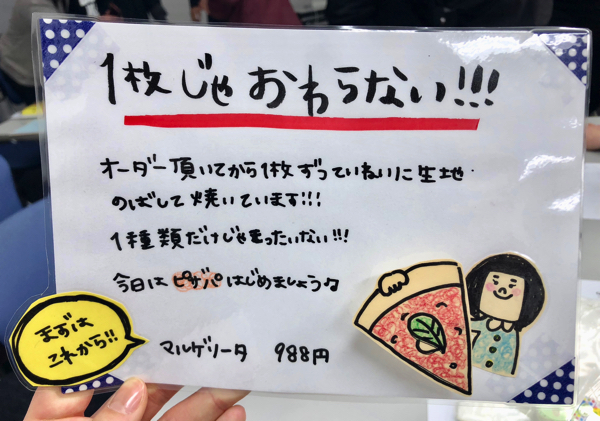 1枚じゃおわらない!!!
オーダー頂いてから1枚ずつていねいに生地
のばして焼いています!!!
1種類だけじゃもったいない!!!
今日はピザパはじめましょう♫
まずは
これから!!
マルゲリータ 988円